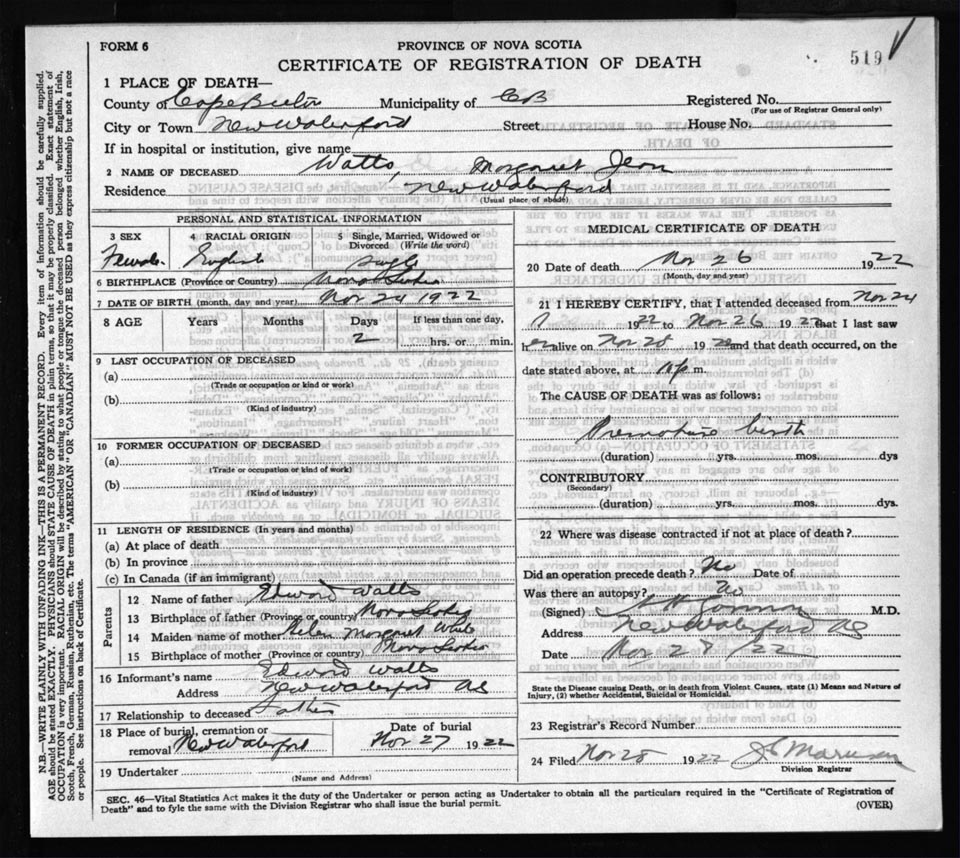 FORM 6
PROVINCE OF NOVA SCOTIA
CERTIFICATE OF REGISTRATION OF DEATH
519
1 PLACE OF DEATH—
County of Cape Breton Municipality of CB Registered No.
(For use of Registrar General only)
City or Town New Waterford Street House No.
If in hospital or institution, give name
2 NAME OF DECEASED Watts, Margaret Jean
Residence New Waterford
(Usual place of abode)
PERSONAL AND STATISTICAL INFORMATION
3 SEX 4 RACIAL ORIGIN 5 Single, Married, Widowed or Divorced (Write the word)
Female English Single
6 BIRTHPLACE (Province or Country) Nova Scotia
7 DATE OF BIRTH (month, day and year) Nov 24 1922
8 AGE Years Months Days If less than one day,
2 hrs. or min.
9 LAST OCCUPATION OF DECEASED
(a)
(Trade or occupation or kind or work)
(b)
(Kind of industry)
10 FORMER OCCUPATION OF DECEASED
(a)
(Trade or occupation or kind or work)
(b)
(Kind of industry)
11 LENGTH OF RESIDENCE (In years and months)
(a) At place of death
(b) In province
(c) In Canada (if an immigrant)
Parents
12 Name of father Edward Watts
13 Birthplace of father (Province or country) Nova Scotia
14 Maiden name of mother Helen Margaret White
15 Birthplace of mother (Province or country) Nova Scotia
16 Informant's name Edward Watts
Address New Waterford NS
17 Relationship to deceased Father
18 Place of burial, cremation or removal New Waterford
Date of burial Nov 27 1922
19 Undertaker
(Name and Address)
MEDICAL CERTIFICATE OF DEATH
20 Date of death Nov 26 1922
(Month, day and year)
21 I HEREBY CERTIFY, that I attended deceased from Nov 24
1922 to Nov 26 1922 that I last saw
her alive on Nov 1922 and that death occurred, on
date stated above, at m.
The CAUSE OF DEATH was as follows:
Premature birth
(duration) yrs. mos. dys
CONTRIBUTORY
(Secondary)
(duration) yrs. mos. dys
22 Where was disease contracted if not at place of death?
Did an operation precede death? No Date of
Was there an autopsy? No
(Signed) M.D.
Address New Waterford NS
Date Nov 28 / 22
State the Disease causing Death, or in death from Violent Causes, state (1) Means and Nature of Injury, (2) whether Accidental, Suicidal or Homicidal.
23 Registrar's Record Number
24 Filed Nov 28 1922
Division Registrar
SEC. 46—Vital Statistics Act makes it the duty of the Undertaker or person acting as Undertaker to obtain all the particulars required in the "Certificate of Registration of
Death" and to fyle the same with the Division Registrar who shall issue the burial permit.
(OVER)
N.B.—WRITE PLAINLY WITH UNFADING INK—THIS IS A PERMANENT RECORD. Every item of information should be carefully supplied.
AGE should be stated EXACTLY. PHYSICIANS should STATE CAUSE OF DEATH in plain terms, so that it may be properly classified. Exact statement of
OCCUPATION is very important. RACIAL ORIGIN will be described by stating to what people or tongue the deceased person belonged whether English, Irish,
Scotch, French, German, Russian, Ruthenian, etc. The terms "AMERICAN" OR "CANADIAN" MUST NOT BE USED as they express citizenship but not a race
or people. See instructions on back of Certificate.